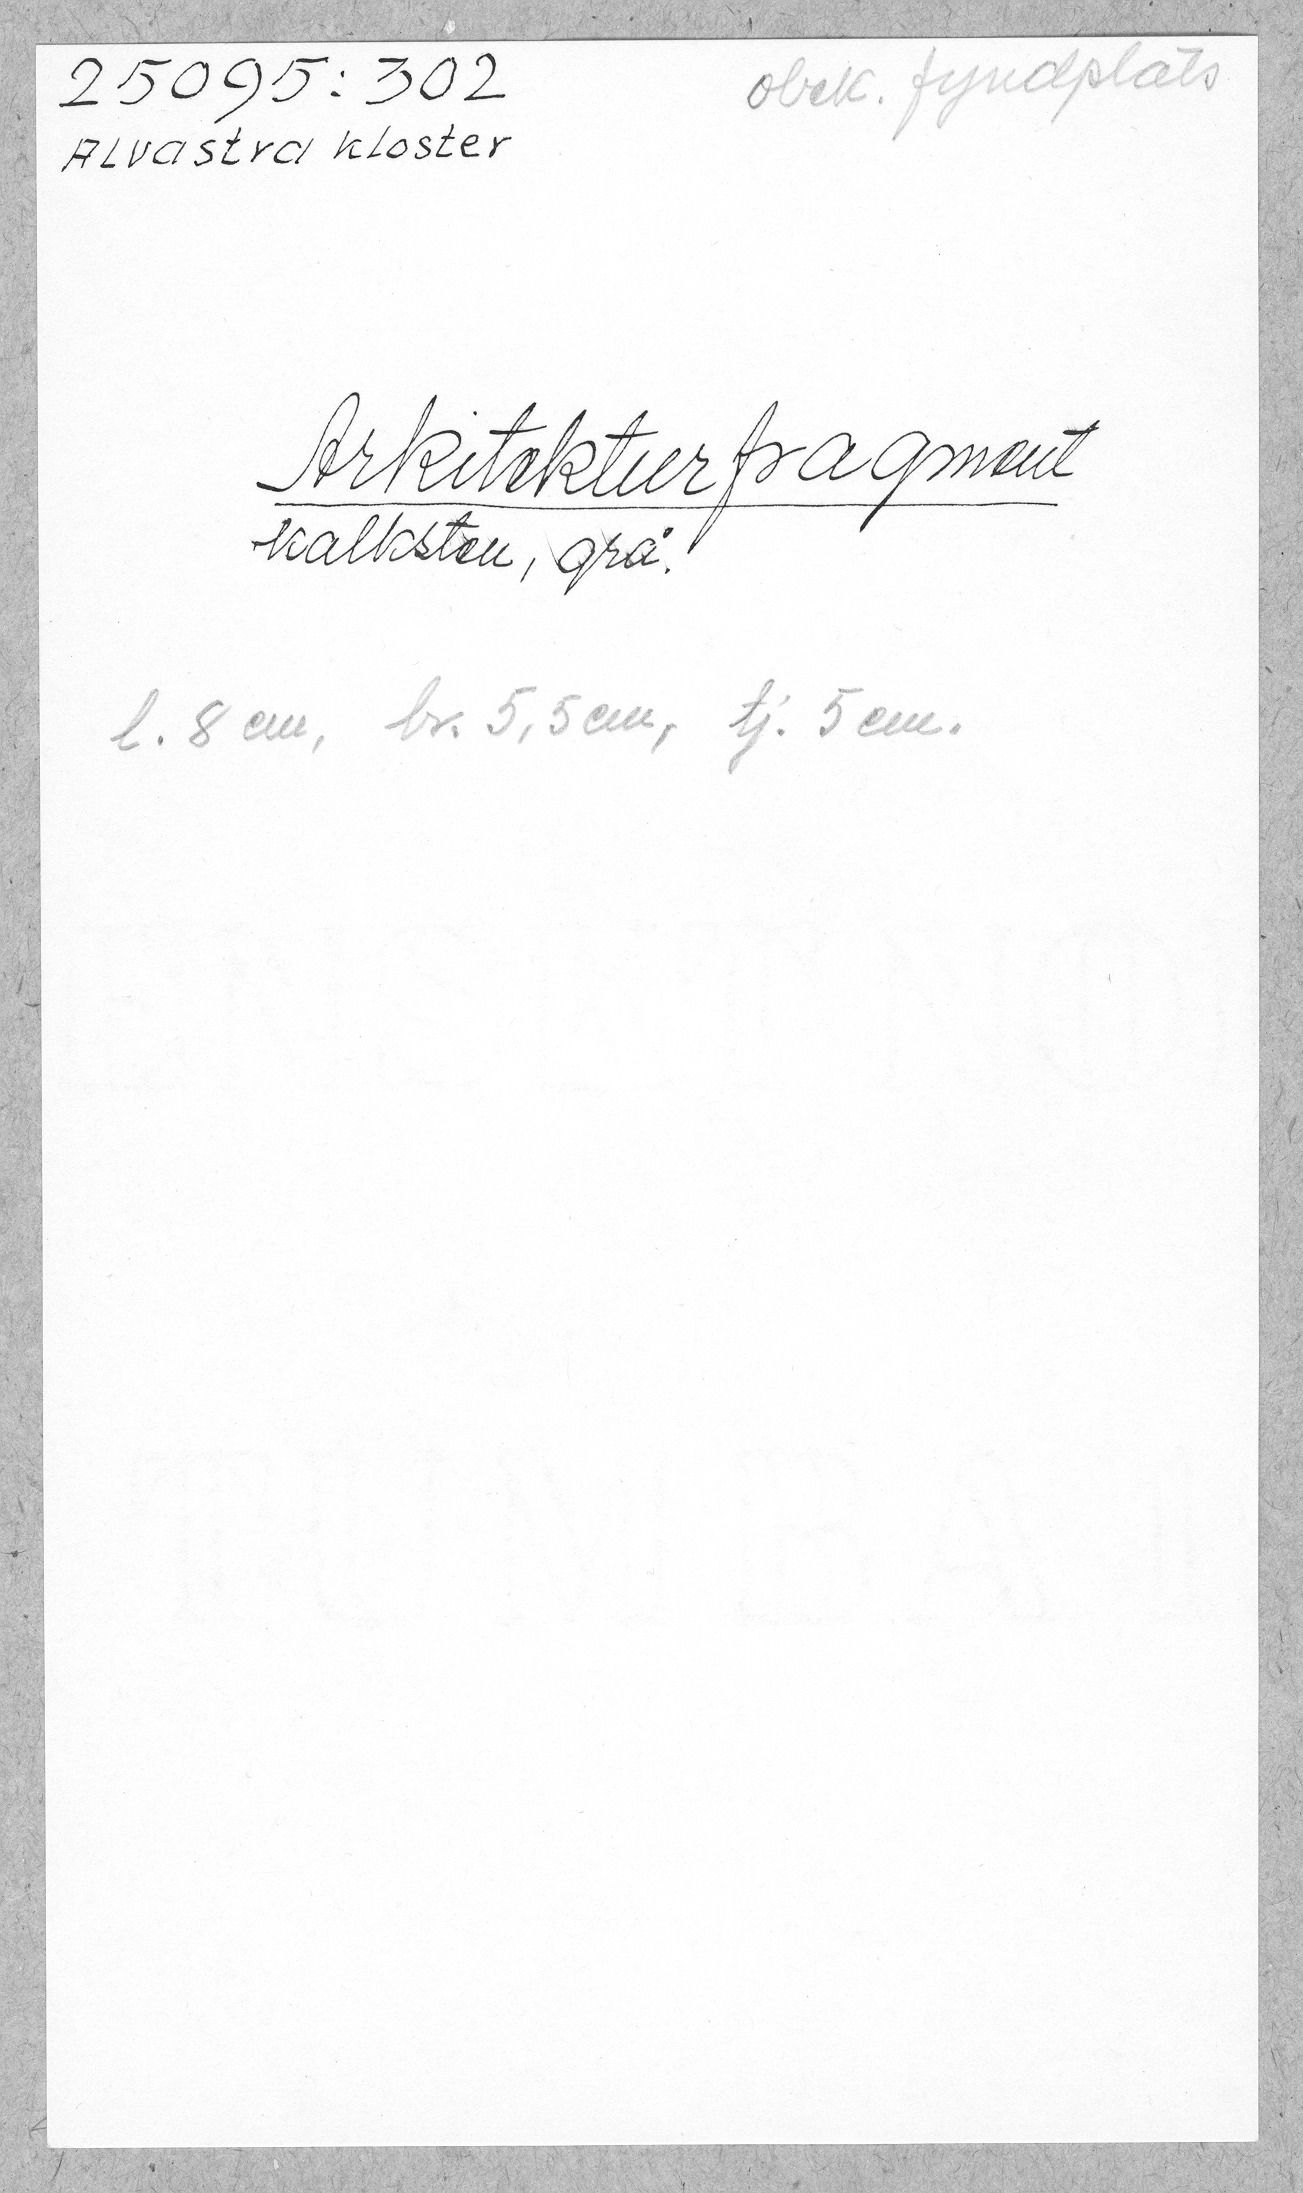 25095:302
obek. fyndplats
Alvastra kloster
Arkitekturfragment
kalksten, grå.
l. 8 cm, br. 5,5 cm, tj. 5 cm.